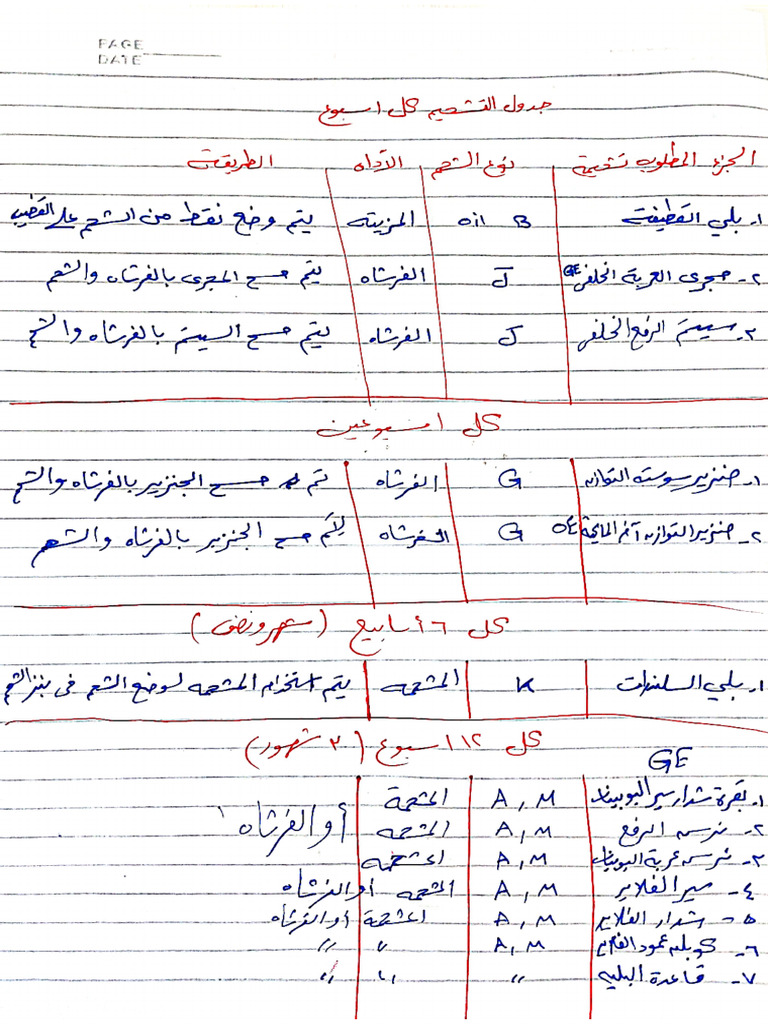 PAGE
DATE
جدول التشحيم كل اسبوع
الجزء المطلوب تشحيمة نوع الشحم الأداه الطريقة
١- بلي القطيفة oil B المزيته يتم وضع نقط من الشحم على القضيب
٢- مجرى العربة الخلفى GE J الفرشاه يتم مسح المجرى بالفرشاه والشحم
٣- سيتم الرفع الخلفى J الفرشاه يتم مسح السيتم بالفرشاه والشحم
كل اسبوعين
١- جنزير سوسته التوازن G الفرشاه تم مسح الجنزير بالفرشاه والشحم
٢- جنزير التوازن آخر الماكينة G الفرشاه يتم مسح الجنزير بالفرشاه والشحم
كل ٦ أسابيع (شهر ونصف)
١- بلي السلندرات K المشحمه يتم استخدام المشحمه لوضع الشحم فى بنز الشحم
كل ١٢ اسبوع (٣ شهور)
GE
١- بكرة شداد سير البوبينات A, M المشحمة
٢- ترس الرفع A, M المشحمه أو الفرشاه
٣- ترس عربة البوبينات A, M المشحمه
٤- سير الفلاير A, M المشحمه أو الفرشاه
٥- شداد الفلاير A, M المشحمة أو الفرشاه
٦- كوبلن عمود الفلاير A, M " "
٧- قاعدة البليه " " "